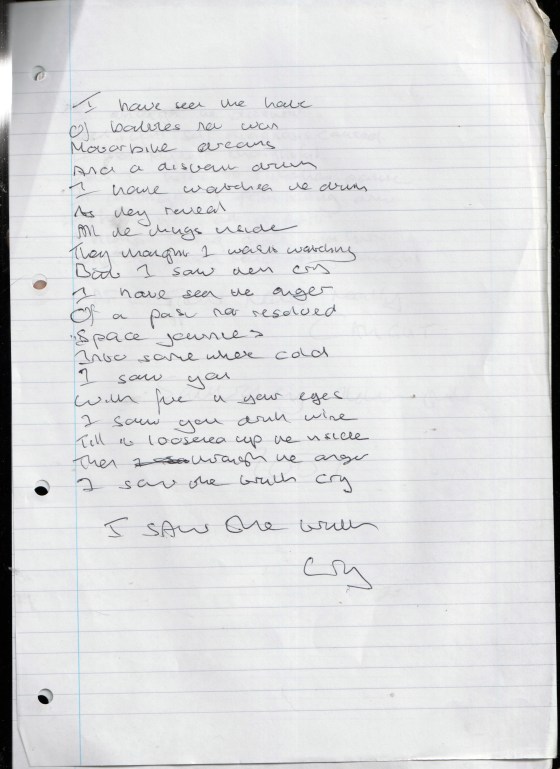 I have seen the hate
Of battles not won
Motorbike dreams
And a distant drum
I have watched the drum
As they reveal
All the things inside
They thought I wasn't watching
But I saw them cry
I have seen the anger
Of a past not resolved
Space journies
Into somewhere cold
I saw you
With fire in your eyes
I saw you drink wine
Till it loosened up the inside
Then through the anger
I saw the truth cry
I saw the truth
Cry